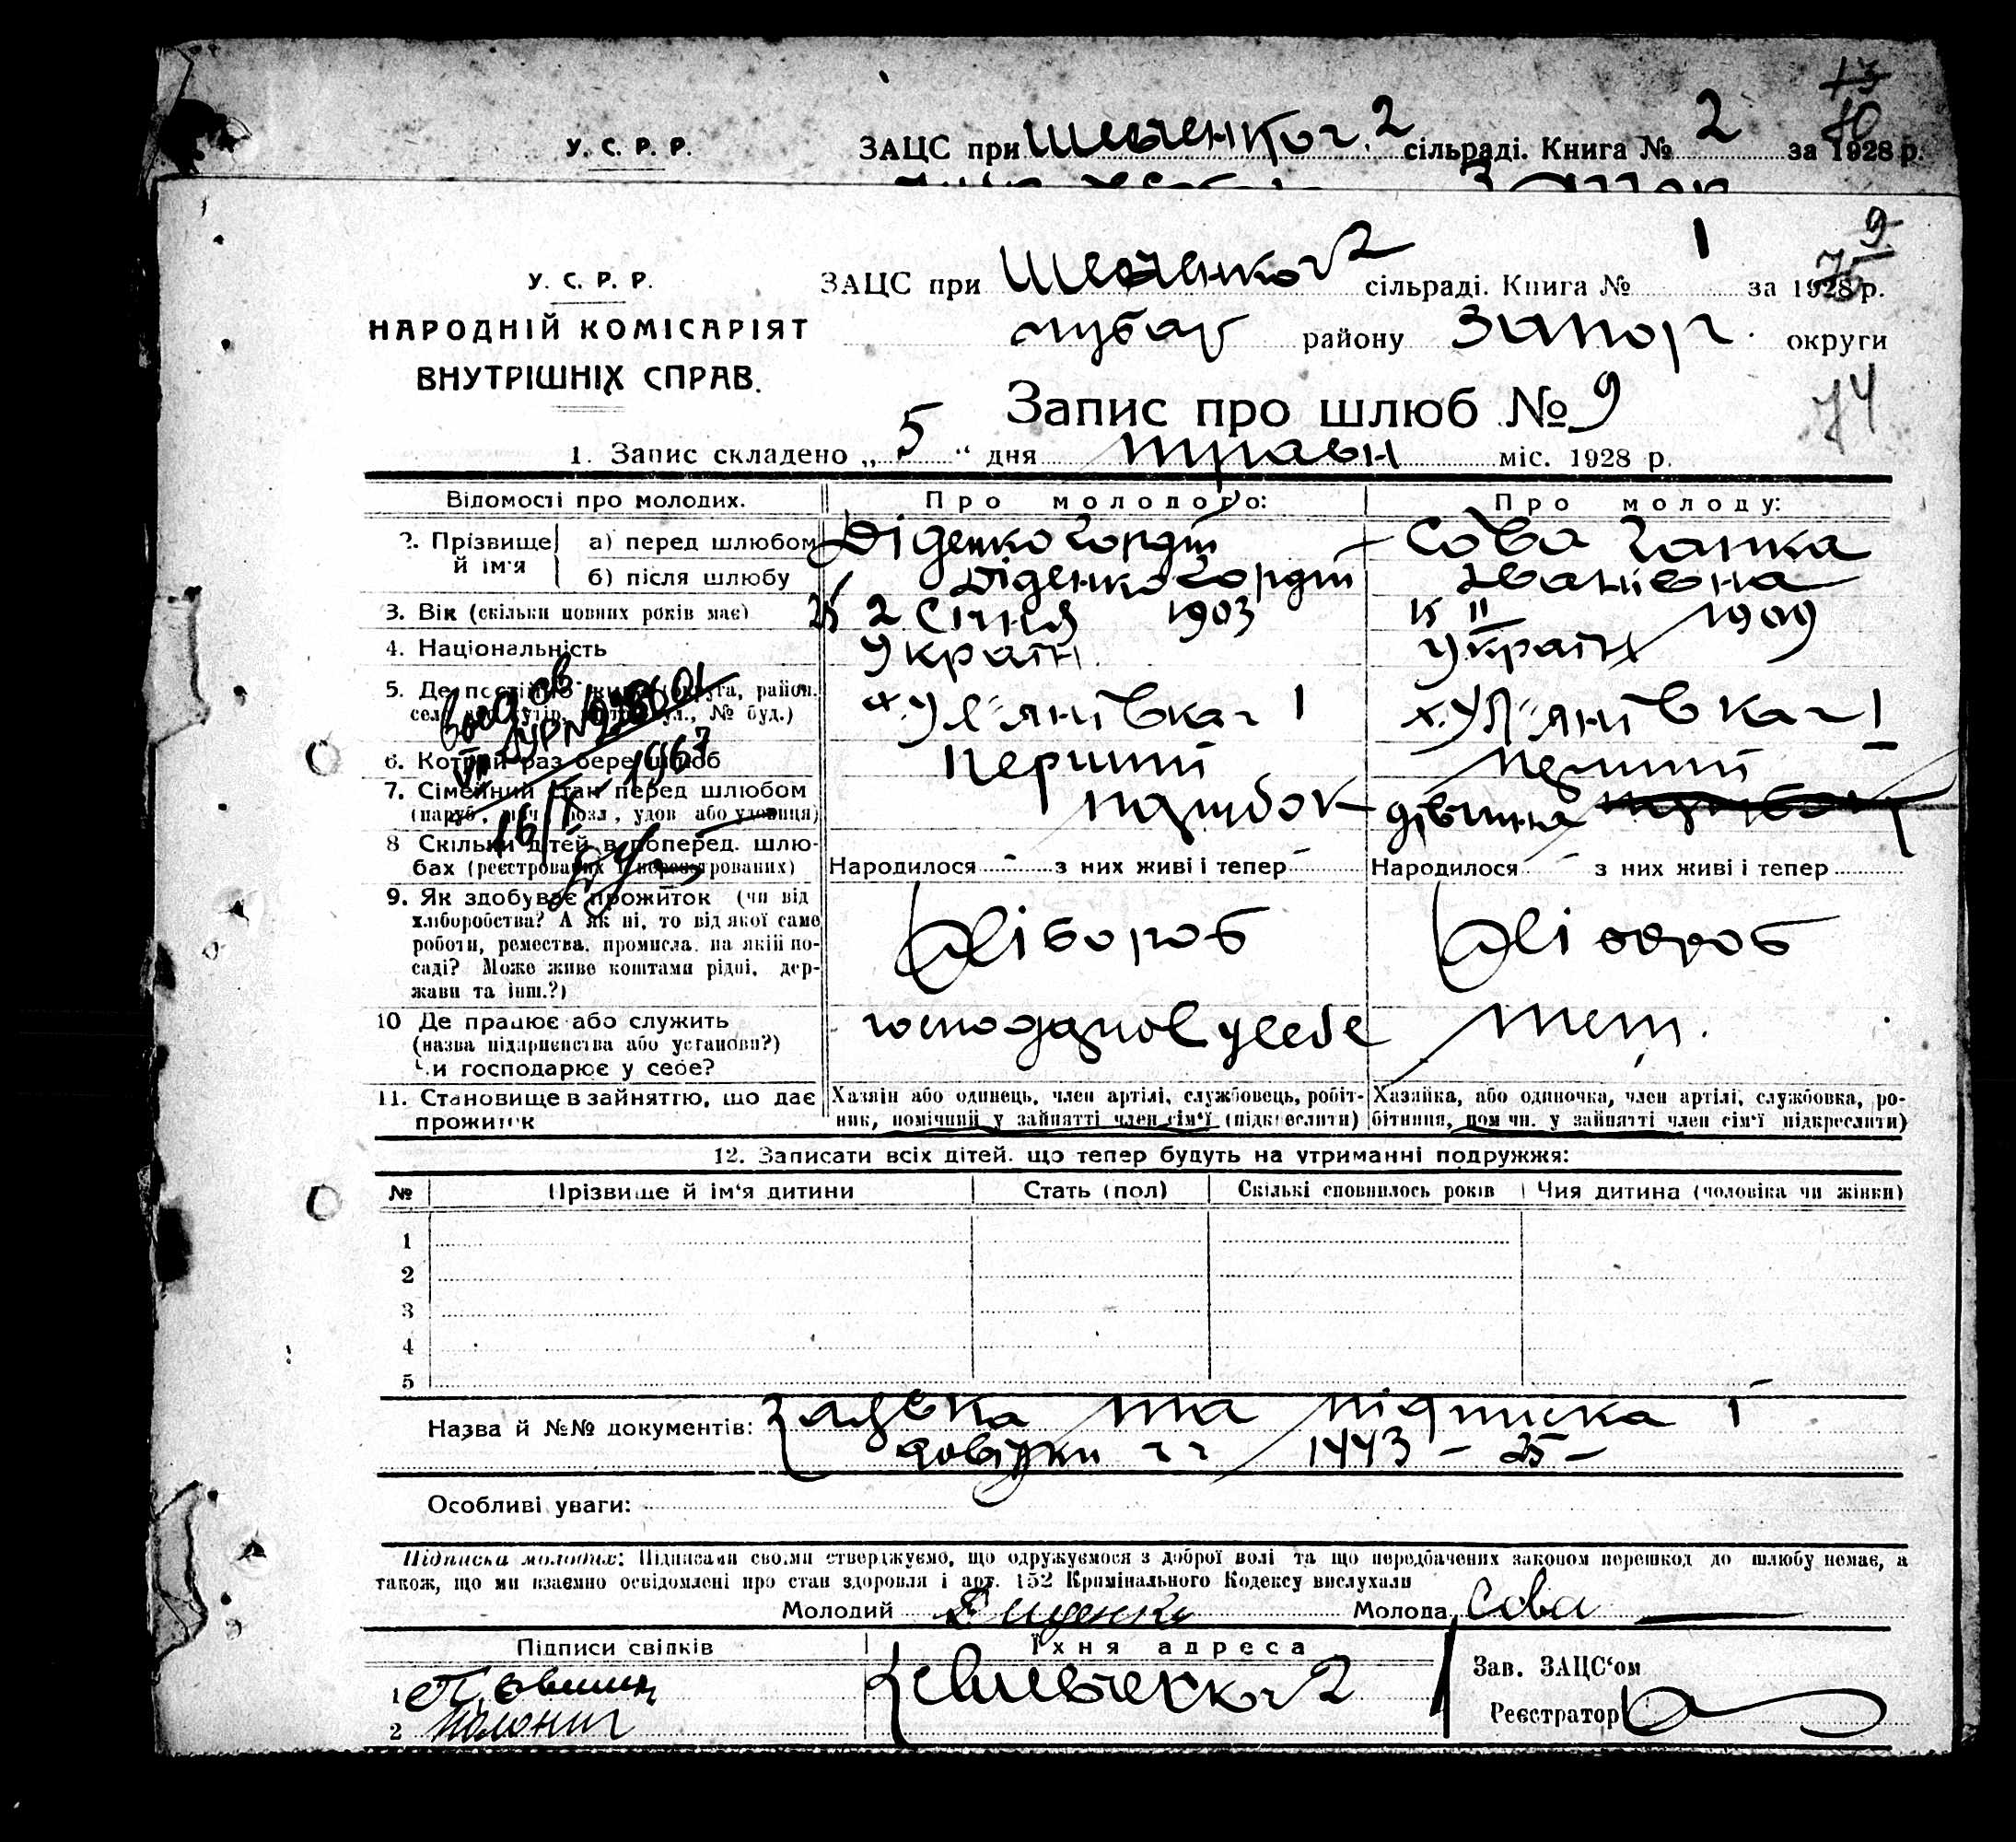 У. С. Р. Р. ЗАЦС при Шевченков. 2 сільраді. Книга № 2 за 1928 р.
У. С. Р. Р.
НАРОДНІЙ КОМІСАРІЯТ
ВНУТРІШНІХ СПРАВ.
ЗАЦС при Шевченков 2 сільраді. Книга № 1 за 1928 р.
9
чубар району Запор. округи
74
Запис про шлюб № 9
1. Запис складено „ 5 “ дня травн міс. 1928 р.
Відомості про молодих. Про молодого: Про молоду:
2. Прізвище й ім'я
а) перед шлюбом Діденко Гордій Сова Ганка
б) після шлюбу Діденко Гордій Іванівна
3. Вік (скільки повних років має) 25 2 Січня 1903 1909
4. Національність Україн. Україн
5. Де постійно живе (округа, район,
село або хутір, місто, вул., № буд.) х. Ул'янівка 1 х. Ул'янівка 1
6. Котрий раз бере шлюб Перший Перший
7. Сімейний стан перед шлюбом парубок дівчина
(паруб., дівч., розл., удов. або удовиця)
видов
1967
8 Скільки дітей в поперед. шлю-
бах (реєстрованих і нереєстрованих) Народилося з них живі і тепер Народилося з них живі і тепер
9. Як здобуває прожиток (чи від
хліборобства? А як ні, то від якої саме
роботи, ремества, промисла, на якій по-
саді? Може живе коштами рідні, дер-
жави та інш.?)
Хлібороб Хлібороб
10 Де працює або служить
(назва підприємства або установи?)
Чи господарює у себе?
господарює у себе теж.
11. Становище в зайняттю, що дає
прожиток
Хазяїн або одинець, член артілі, службовець, робіт-
ник, помічний у зайнятті член сім'ї (підкреслити)
Хазяйка, або одиночка, член артілі, службовка, ро-
бітниця, помічн. у зайнятті член сім'ї підкреслити)
12. Записати всіх дітей, що тепер будуть на утриманні подружжя:
№ Прізвище й ім'я дитини Стать (пол) Скількі сповнилось років Чия дитина (чоловіка чи жінки)
1
2
3
4
5
Назва й №№ документів: Заявка та підписка і
довідки 1443 – 25 –
Особливі уваги:
Підписка молодих: Підписами своїми стверджуємо, що одружуємося з доброї волі та що передбачених законом перешкод до шлюбу немає, а
також, що ми взаємно освідомлені про стан здоровля і арт. 152 Кримінального Кодексу вислухали
Молодий Диденко Молода Сова
Підписи свідків Їхня адреса
Зав. ЗАЦС'ом
1
2
с Шевченков 2
Реєстратор